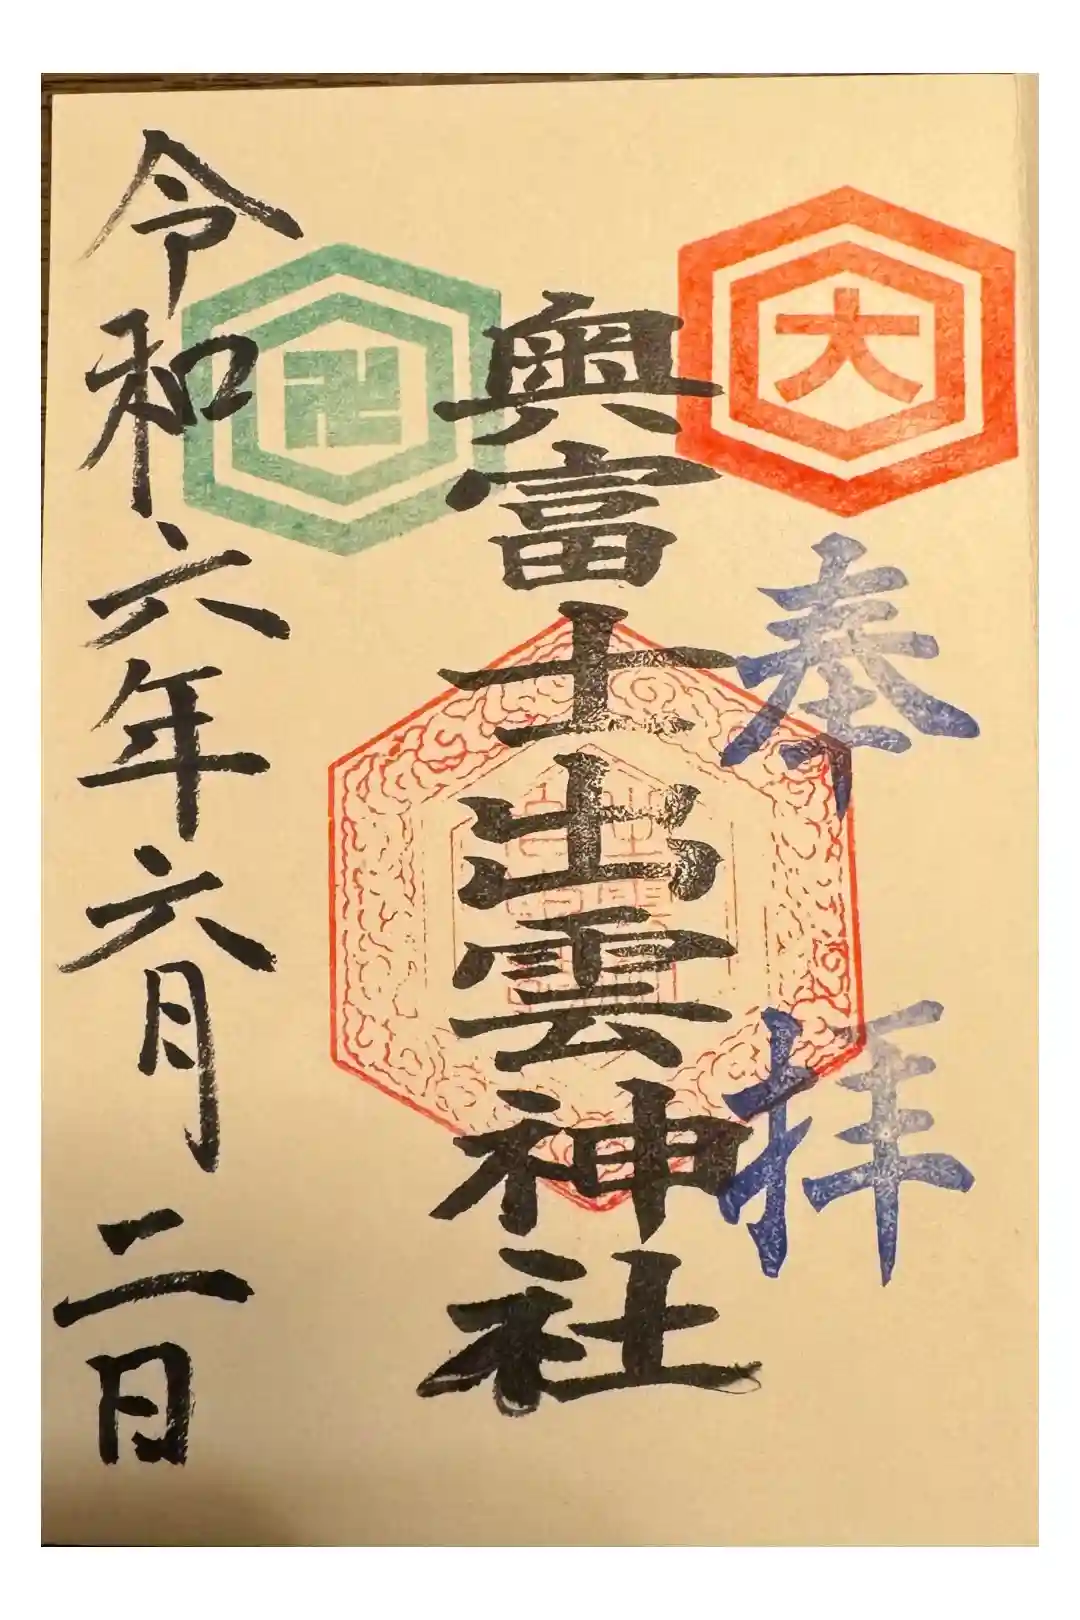 大
奉拝
奥富士出雲神社
卍
令和六年六月二日